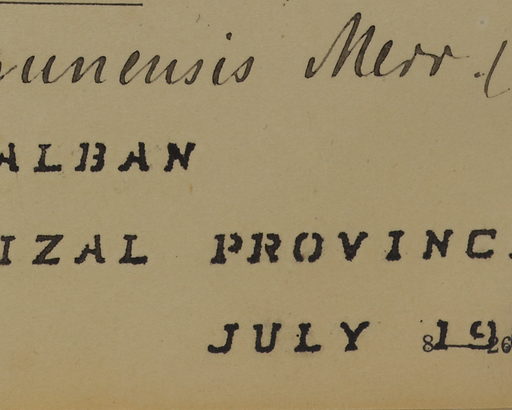 unensis Merr. (
ALBAN
IZAL PROVINC
JULY 19